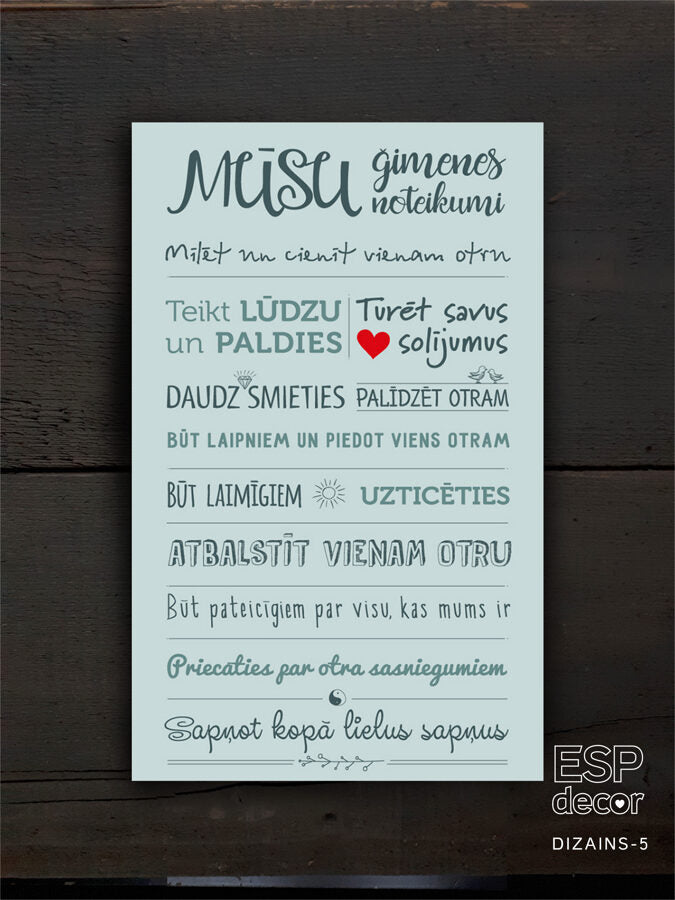 MŪSU ģimenes
noteikumi
Mīlēt un cienīt vienam otru
Teikt LŪDZU
un PALDIES
Turēt savus
solījumus
DAUDZ SMIETIES
PALĪDZĒT OTRAM
BŪT LAIPNIEM UN PIEDOT VIENS OTRAM
BŪT LAIMĪGIEM
UZTICĒTIES
ATBALSTĪT VIENAM OTRU
Būt pateicīgiem par visu, kas mums ir
Priecāties par otra sasniegumiem
Sapņot kopā lielus sapņus
ESP
decor
DIZAINS-5